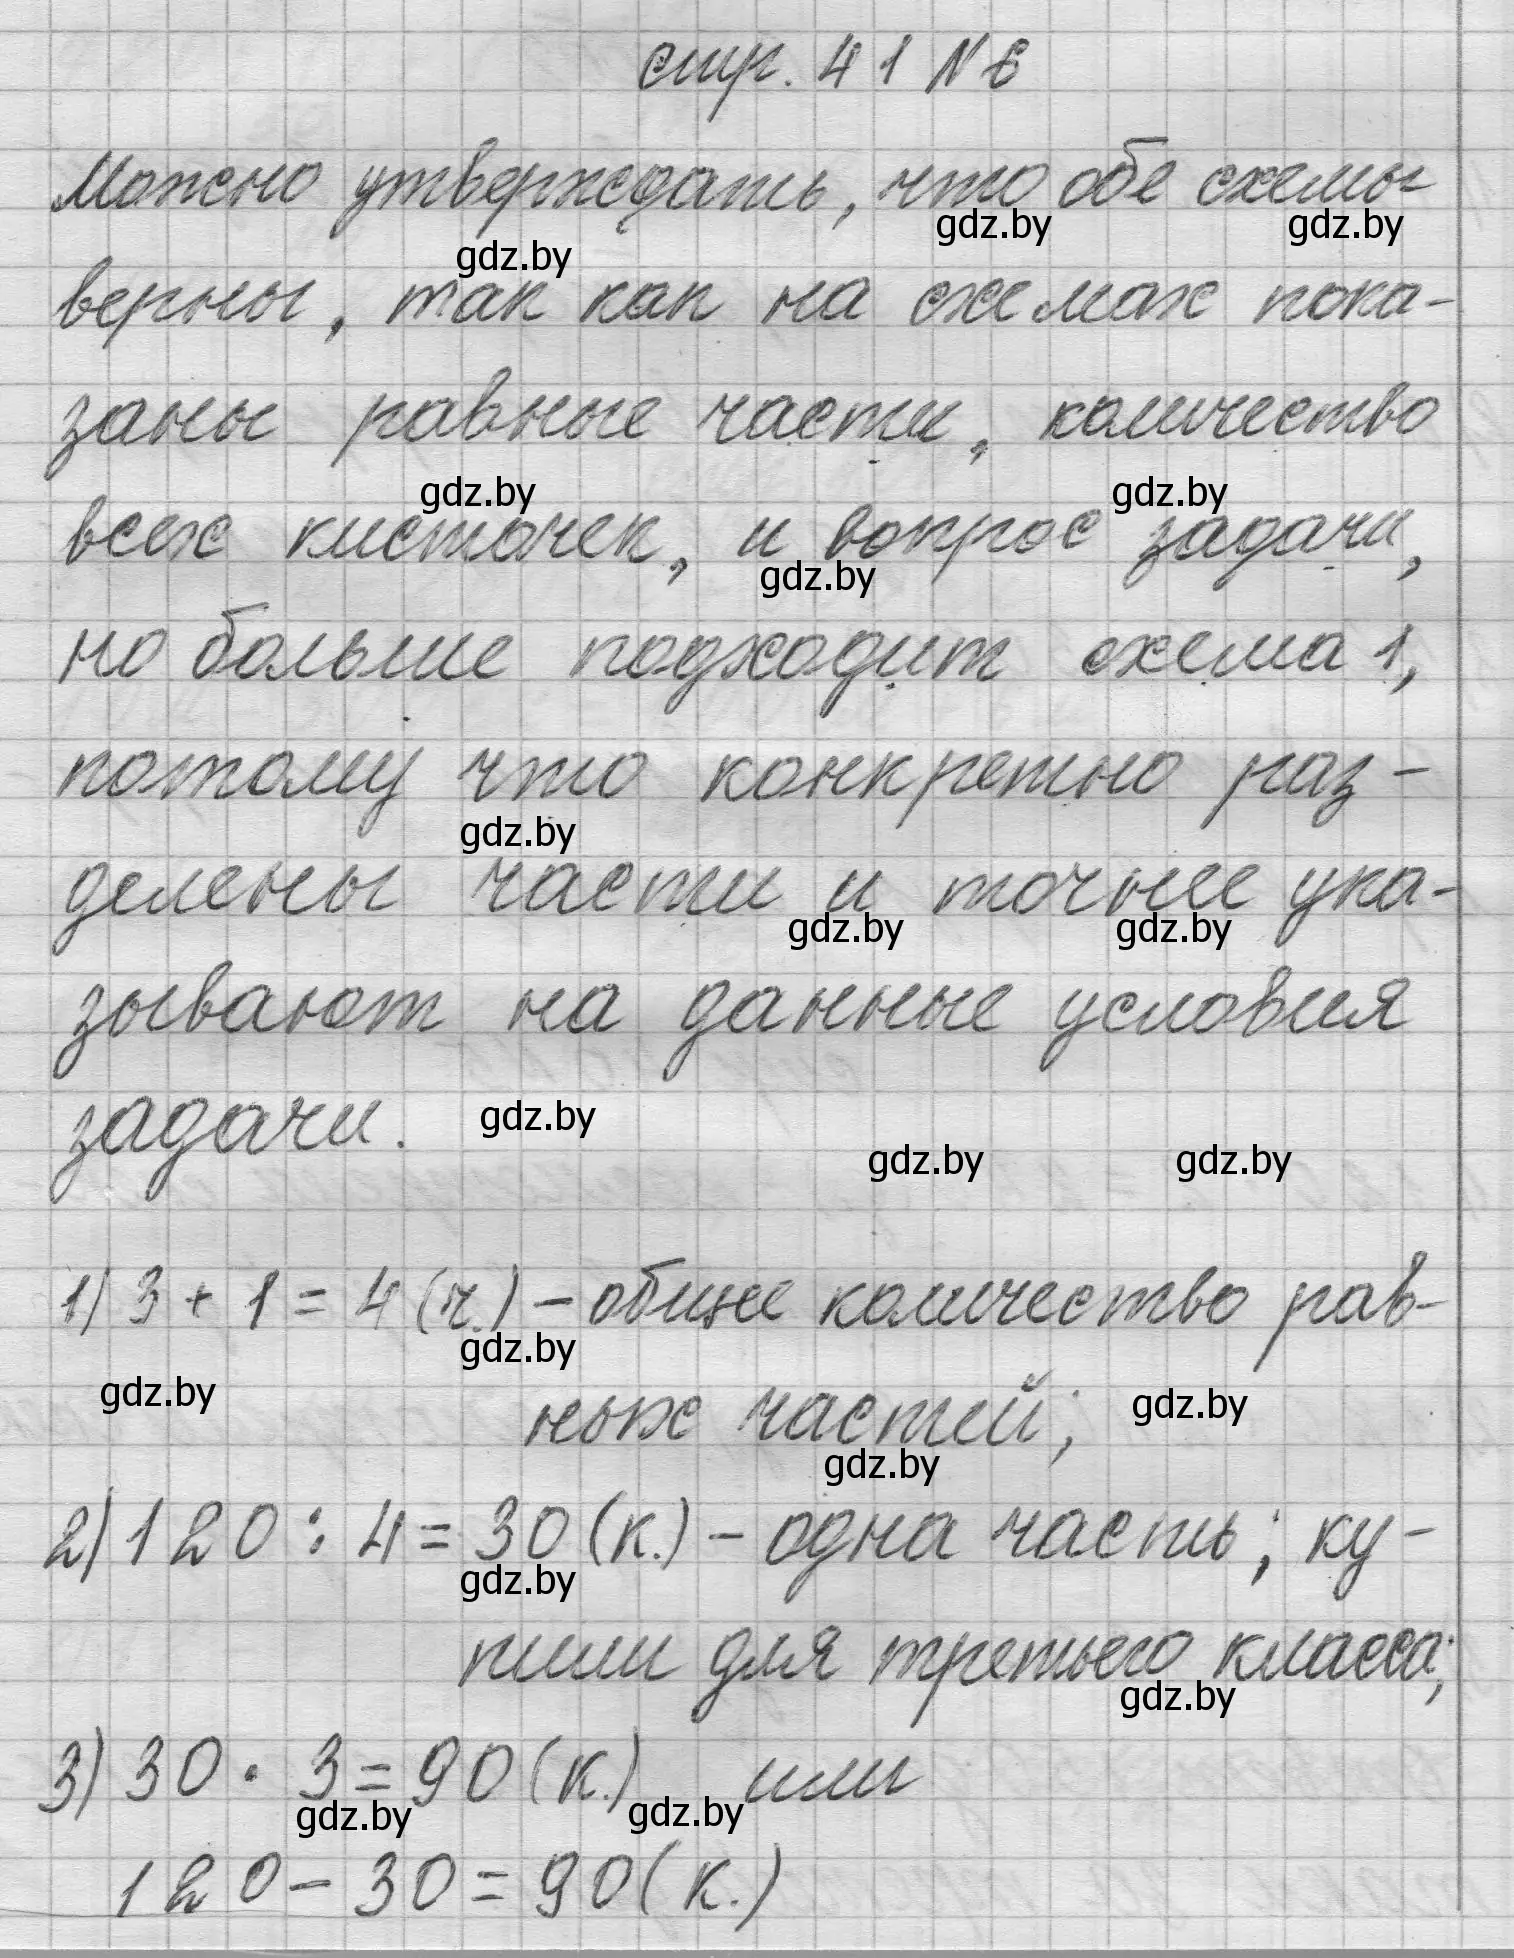 стр. 41 N 6
Можно утверждать, что обе схемы
gdz.by gdz.by
gdz.by
верны, так как на схемах пока-
заны равные части, количество
gdz.by gdz.by
всех кисточек, и вопрос задачи,
gdz.by
но больше подходит схема 1,
потому что конкретно раз-
gdz.by
делены части и точнее ука-
gdz.by gdz.by
зывают на данные условия
задачи.
gdz.by
gdz.by gdz.by
1) 3 + 1 = 4 (ч.) - общее количество рав-
gdz.by
gdz.by
ных частей;
gdz.by
gdz.by
2) 120 : 4 = 30 (к.) - одна часть; ку-
gdz.by
пили для третьего класса;
gdz.by
3) 30 · 3 = 90 (к.) или
gdz.by gdz.by
120 - 30 = 90 (к.)